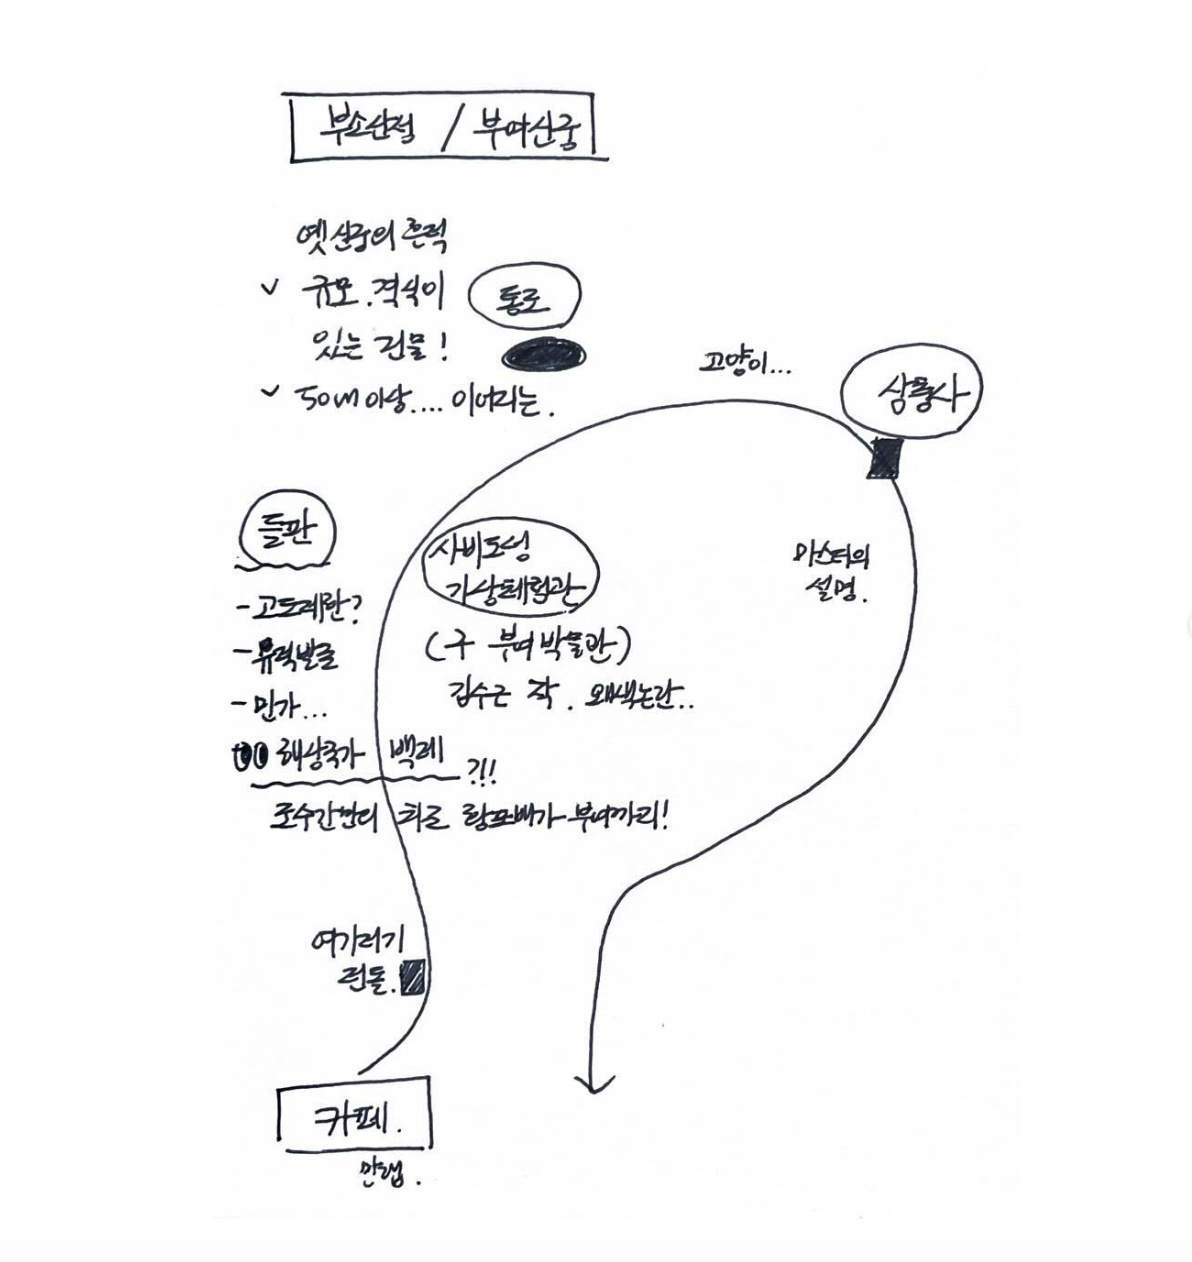 부소산성 / 부여신궁
옛 신궁의 흔적
✓ 규모. 격식이
있는 건물!
통로
✓ 50m 이상.... 이어지는.
고양이...
삼충사
들판
- 고도제한?
- 유적발굴
- 민가...
사비도성
가상체험관
(구 부여박물관)
김수근 작. 왜색논란..
마스터의
설명.
해상국가 백제 ?!!
조수간만의 차로 황포배가 부여까지!
여기저기
카페.